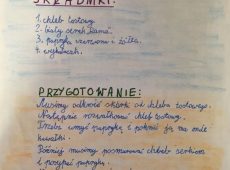 SKŁADNIKI:
1. chleb tostowy.
2. biały serek "Rama"
3. papryka czerwona i żółta.
4. wykałaczki.
PRZYGOTOWANIE:
Musimy odkroić skórki od chleba tostowego.
Następnie rozwałkować chleb tostowy.
Trzeba umyć paprykę i pokroić ją na małe
kawałki.
Później musimy posmarować chlebek serkiem
i posypać papryką.